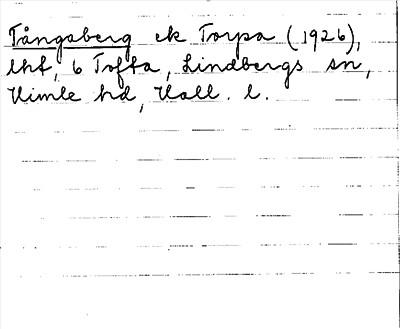 Tångaberg ek Torpa (1926),
lht, 6 Tofta, Lindbergs sn,
Himle hd, Hall. l.